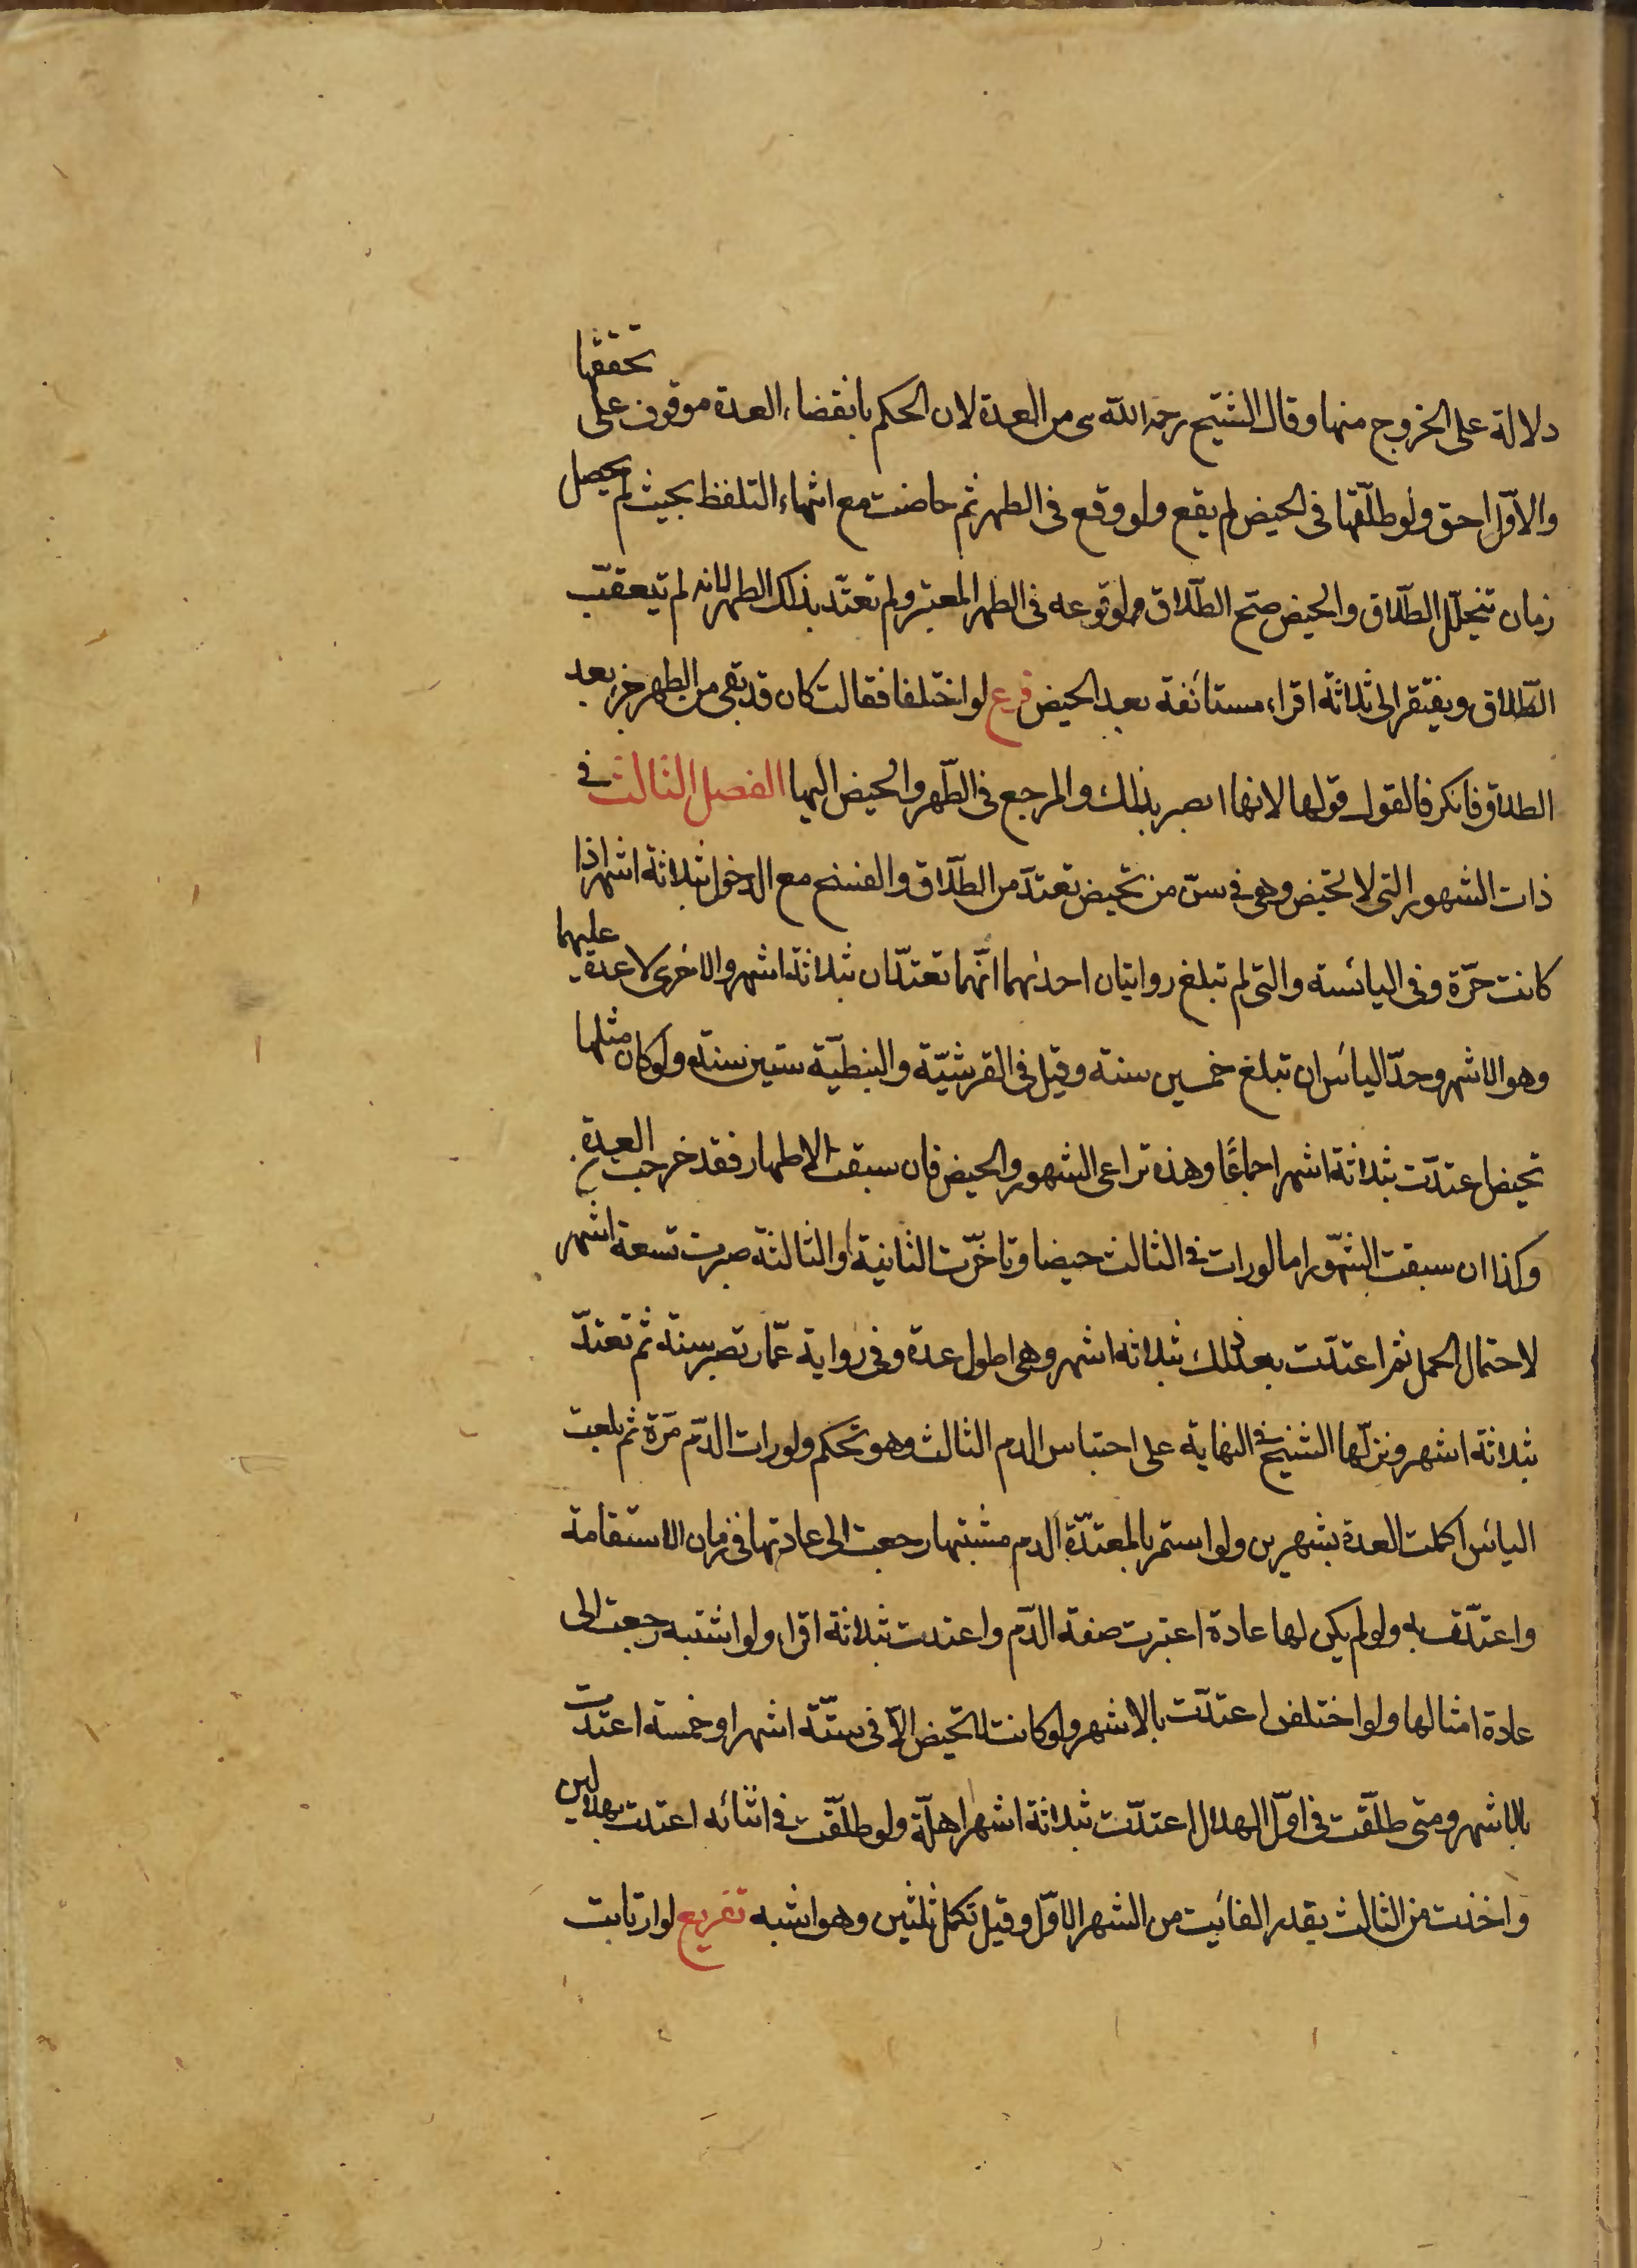 دلالة على الخروج منها وقال الشيخ رحمه الله هى من العدة لان الحكم بانقضاء العدة موقوف على تحققها
والاول احق ولو طلّقها فى الحيض لم يقع ولو وقع فى الطهر ثم حاضت مع انتهاء التلفظ بحيث لم يحصل
زمان تتخلّل الطّلاق والحيض صحّ الطّلاق ولوقوعه فى الطهر المعتبر ولم تعتدّ بذلك الطهر لانه لم تتعقّب
الطّلاق ويفتقر الى ثلاثة اقراء مستانفة بعد الحيض فرع لو اختلفا فقالت كان قد بقى من الطهر جزء بعد
الطلاق فانكر فالقول قولها لانها ابصر بذلك والمرجع فى الطّهر والحيض اليها الفصل الثالث فى
ذات الشهور التى لا تحيض وهى فى سنّ من تحيض تعتدّ من الطّلاق والفسخ مع الدخول بثلاثة اشهر اذا
كانت حرّة وفى اليائسة والتى لم تبلغ روايتان احدٰىهما انّهما تعتدّان بثلاثة اشهر والاخرى لا عدة عليهما
وهو الاشهر وحدّ الياس ان تبلغ خمسين سنة وقيل فى القرشيّة والنبطيّة ستين سنة ولو كان مثلها
تحيض اعتدّت بثلاثة اشهر اجماعًا وهذه تراعى الشهور والحيض فان سبقت الاطهار فقد خرجت العدة
وكذا ان سبقت الشّهور اما لو رات فى الثالث حيضا وتاخّرت الثانية او الثالثة صبرت تسعة اشهر
لاحتمال الحمل ثم اعتدّت بعد ذلك بثلاثة اشهر وهى اطول عدة وفى رواية عمّار تصبر سنة ثم تعتدّ
بثلاثة اشهر ونزلّها الشيخ فى النهاية على احتباس الدم الثالث وهو تحكم ولو رات الدّم مرّة ثم بلغت
الياس اكملت العدة بشهرين ولو استمر بالمعتدّة الدم مشتبها رجعت الى عادتها فى زمان الاستقامة
واعتدّت به ولو لم يكن لها عادة اعتبرت صفة الدّم واعتدت بثلاثة اقراء ولو اشتبه رجعت الى
عادة امثالها ولو اختلفن اعتدّت بالاشهر ولو كانت لا تحيض الّا فى ستّة اشهر او خمسة اعتدت
بالاشهر ومتى طلّقت فى اوّل الهلال اعتدّت بثلاثة اشهر اهلّة ولو طلّقت فى اثنائه اعتدت بهلالين
واخذت من الثالث بقدر الفائت من الشهر الاوّل وقيل تكمل ثلثين وهو اشبه تفريع لو ارتابت